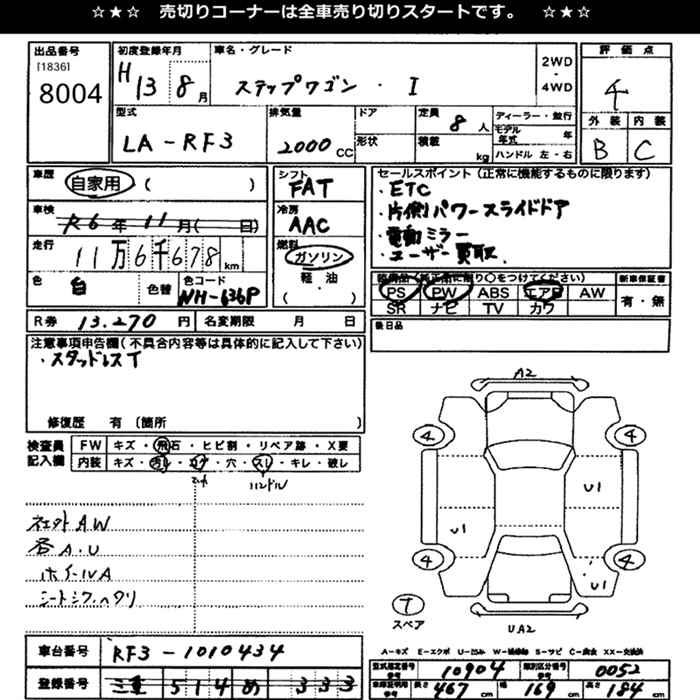 ☆★☆ 売切りコーナーは全車売り切りスタートです。 ☆★☆
出品番号
[1836]
8004
初度登録年月
H13 8月
車名・グレード
ステップワゴン・I
2WD
・
4WD
評価点
4
外装 内装
B C
型式
LA-RF3
排気量
2000 CC
ドア
形状
定員
8人
積載
kg
ディーラー・並行
モデル年式 年
ハンドル 左・右
車歴
自家用 ( )
車検
R6年11月( 日)
走行
11万6千678 km
色
色替
色コード
NH-636P
シフト
FAT
冷房
AAC
燃料
ガソリン
軽・油
( )
セールスポイント(正常に機能するものに限ります)
・ETC
・片側パワースライドドア
・電動ミラー
・ユーザー買取
PS PW ABS エアB AW
SR ナビ TV カワ
新車保証書
有・無
後日品
R券 13.270 円
名変期限 月 日
注意事項申告欄(不具合内容等は具体的に記入して下さい)
・スタッドレスT
修復歴 有 (箇所 )
検査員
記入欄
FW キズ・飛石・ヒビ割・リペア跡・X要
内装 キズ・汚レ・コゲ・穴・スレ・キレ・破レ
ハンドル
社外AW
各A.U
ホイールA
シートシワ.ヘタリ
A2
4 4
U1
U1
4 4
U1
T
スペア
UA2
車台番号
RF3-1010434
登録番号
三重 514 め 333
A-キズ E-エクボ U-凹み W-補修跡 S-サビ C-腐食 XX-交換済
型式指定番号
10904
類別区分番号
0052
長さ 467 cm
幅 169 cm
高さ 184 cm